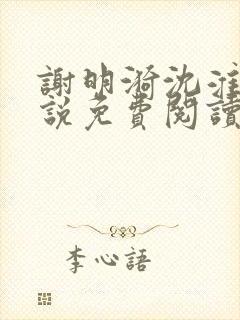 謝明漪沈淮
說免費閱讀
李心語